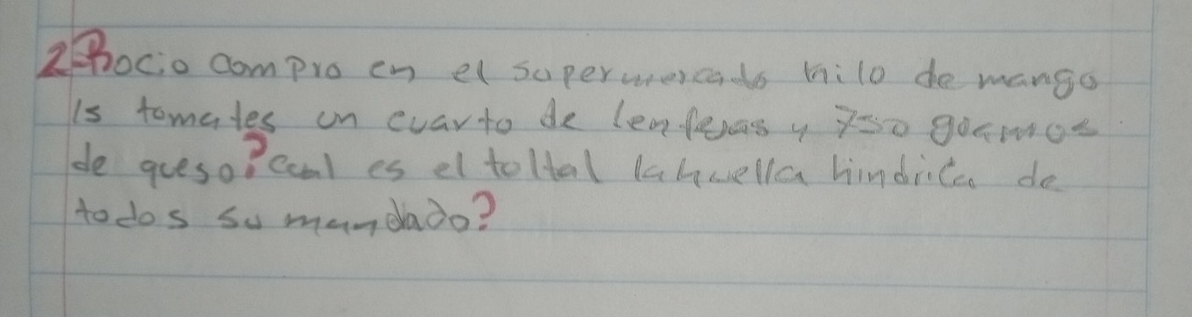 2-Rocio compro en el supermercado kilo de mango
15 tomates un cuarto de lentejas y 750 gramos
de queso ¿Cual es el toltal la huella hindrica de
todos su mandado?